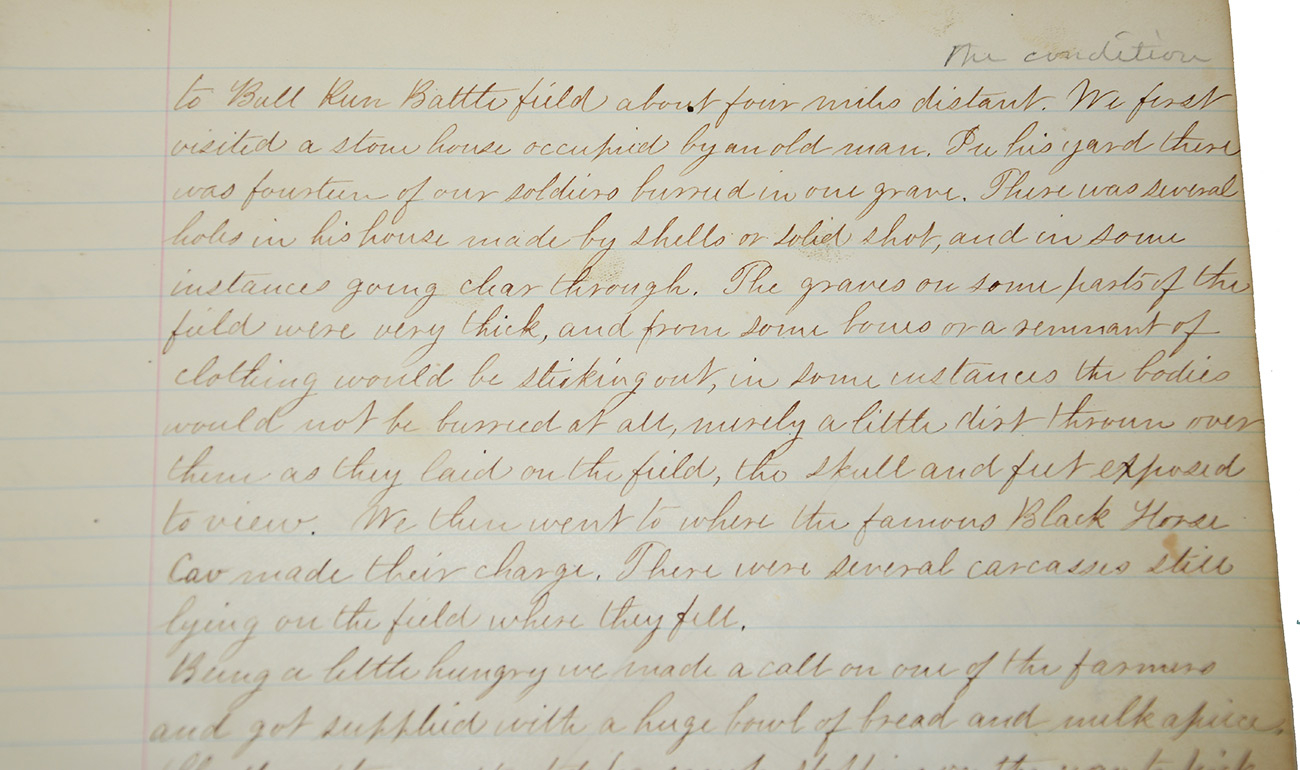 The condition
to Bull Run Battle field about four miles distant. We first
visited a stone house occupied by an old man. In his yard there
was fourteen of our soldiers burried in one grave. There was several
holes in his house made by shells or solid shot, and in some
instances going clear through. The graves on some parts of the
field were very thick, and from some bones or a remnant of
clothing would be sticking out, in some instances the bodies
would not be burried at all, merely a little dirt thrown over
them as they laid on the field, the skull and feet exposed
to view. We then went to where the famous Black Horse
Cav made their charge. There were several carcasses still
lying on the field where they fell.
Being a little hungry we made a call on one of the farmers
and got supplied with a huge bowl of bread and milk apiece.